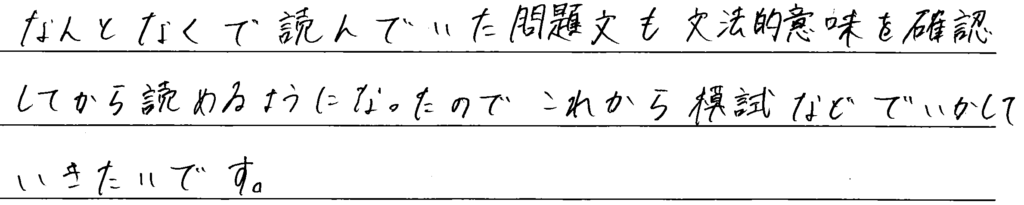 なんとなくで読んでいた問題文も文法的意味を確認
してから読めるようになったのでこれから模試などでいかして
いきたいです。